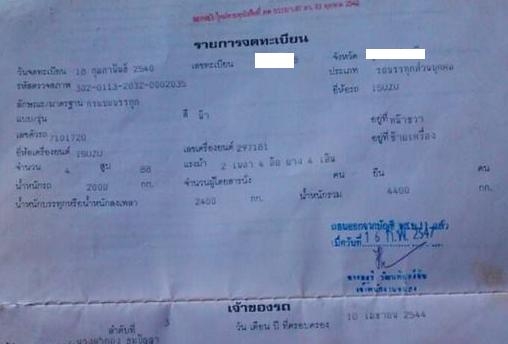 รายการจดทะเบียน
วันจดทะเบียน 18 กุมภาพันธ์ 2540 เลขทะเบียน จังหวัด
รหัสตรวจสภาพ 302-0113-2032-0002035 ประเภท รถบรรทุกส่วนบุคคล
ลักษณะ/มาตรฐาน กระบะบรรทุก ยี่ห้อรถ ISUZU
แบบ/รุ่น สี ฟ้า
เลขตัวรถ 7101720 อยู่ที่ หน้าขวา
ยี่ห้อเครื่องยนต์ ISUZU เลขเครื่องยนต์ 297181 อยู่ที่ ซ้ายเครื่อง
จำนวน 4 สูบ 88 แรงม้า 2 เพลา 4 ล้อ ยาง 4 เส้น
น้ำหนักรถ 2000 กก. จำนวนผู้โดยสารนั่ง คน ยืน คน
น้ำหนักบรรทุกหรือน้ำหนักลงเพลา 2400 กก. น้ำหนักรวม 4400 กก.
แล้ว
เมื่อวันที่ 16 ก.พ. 2547
เจ้าของรถ
ลำดับที่ 3 วัน เดือน ปี ที่ครอบครอง 10 เมษายน 2544